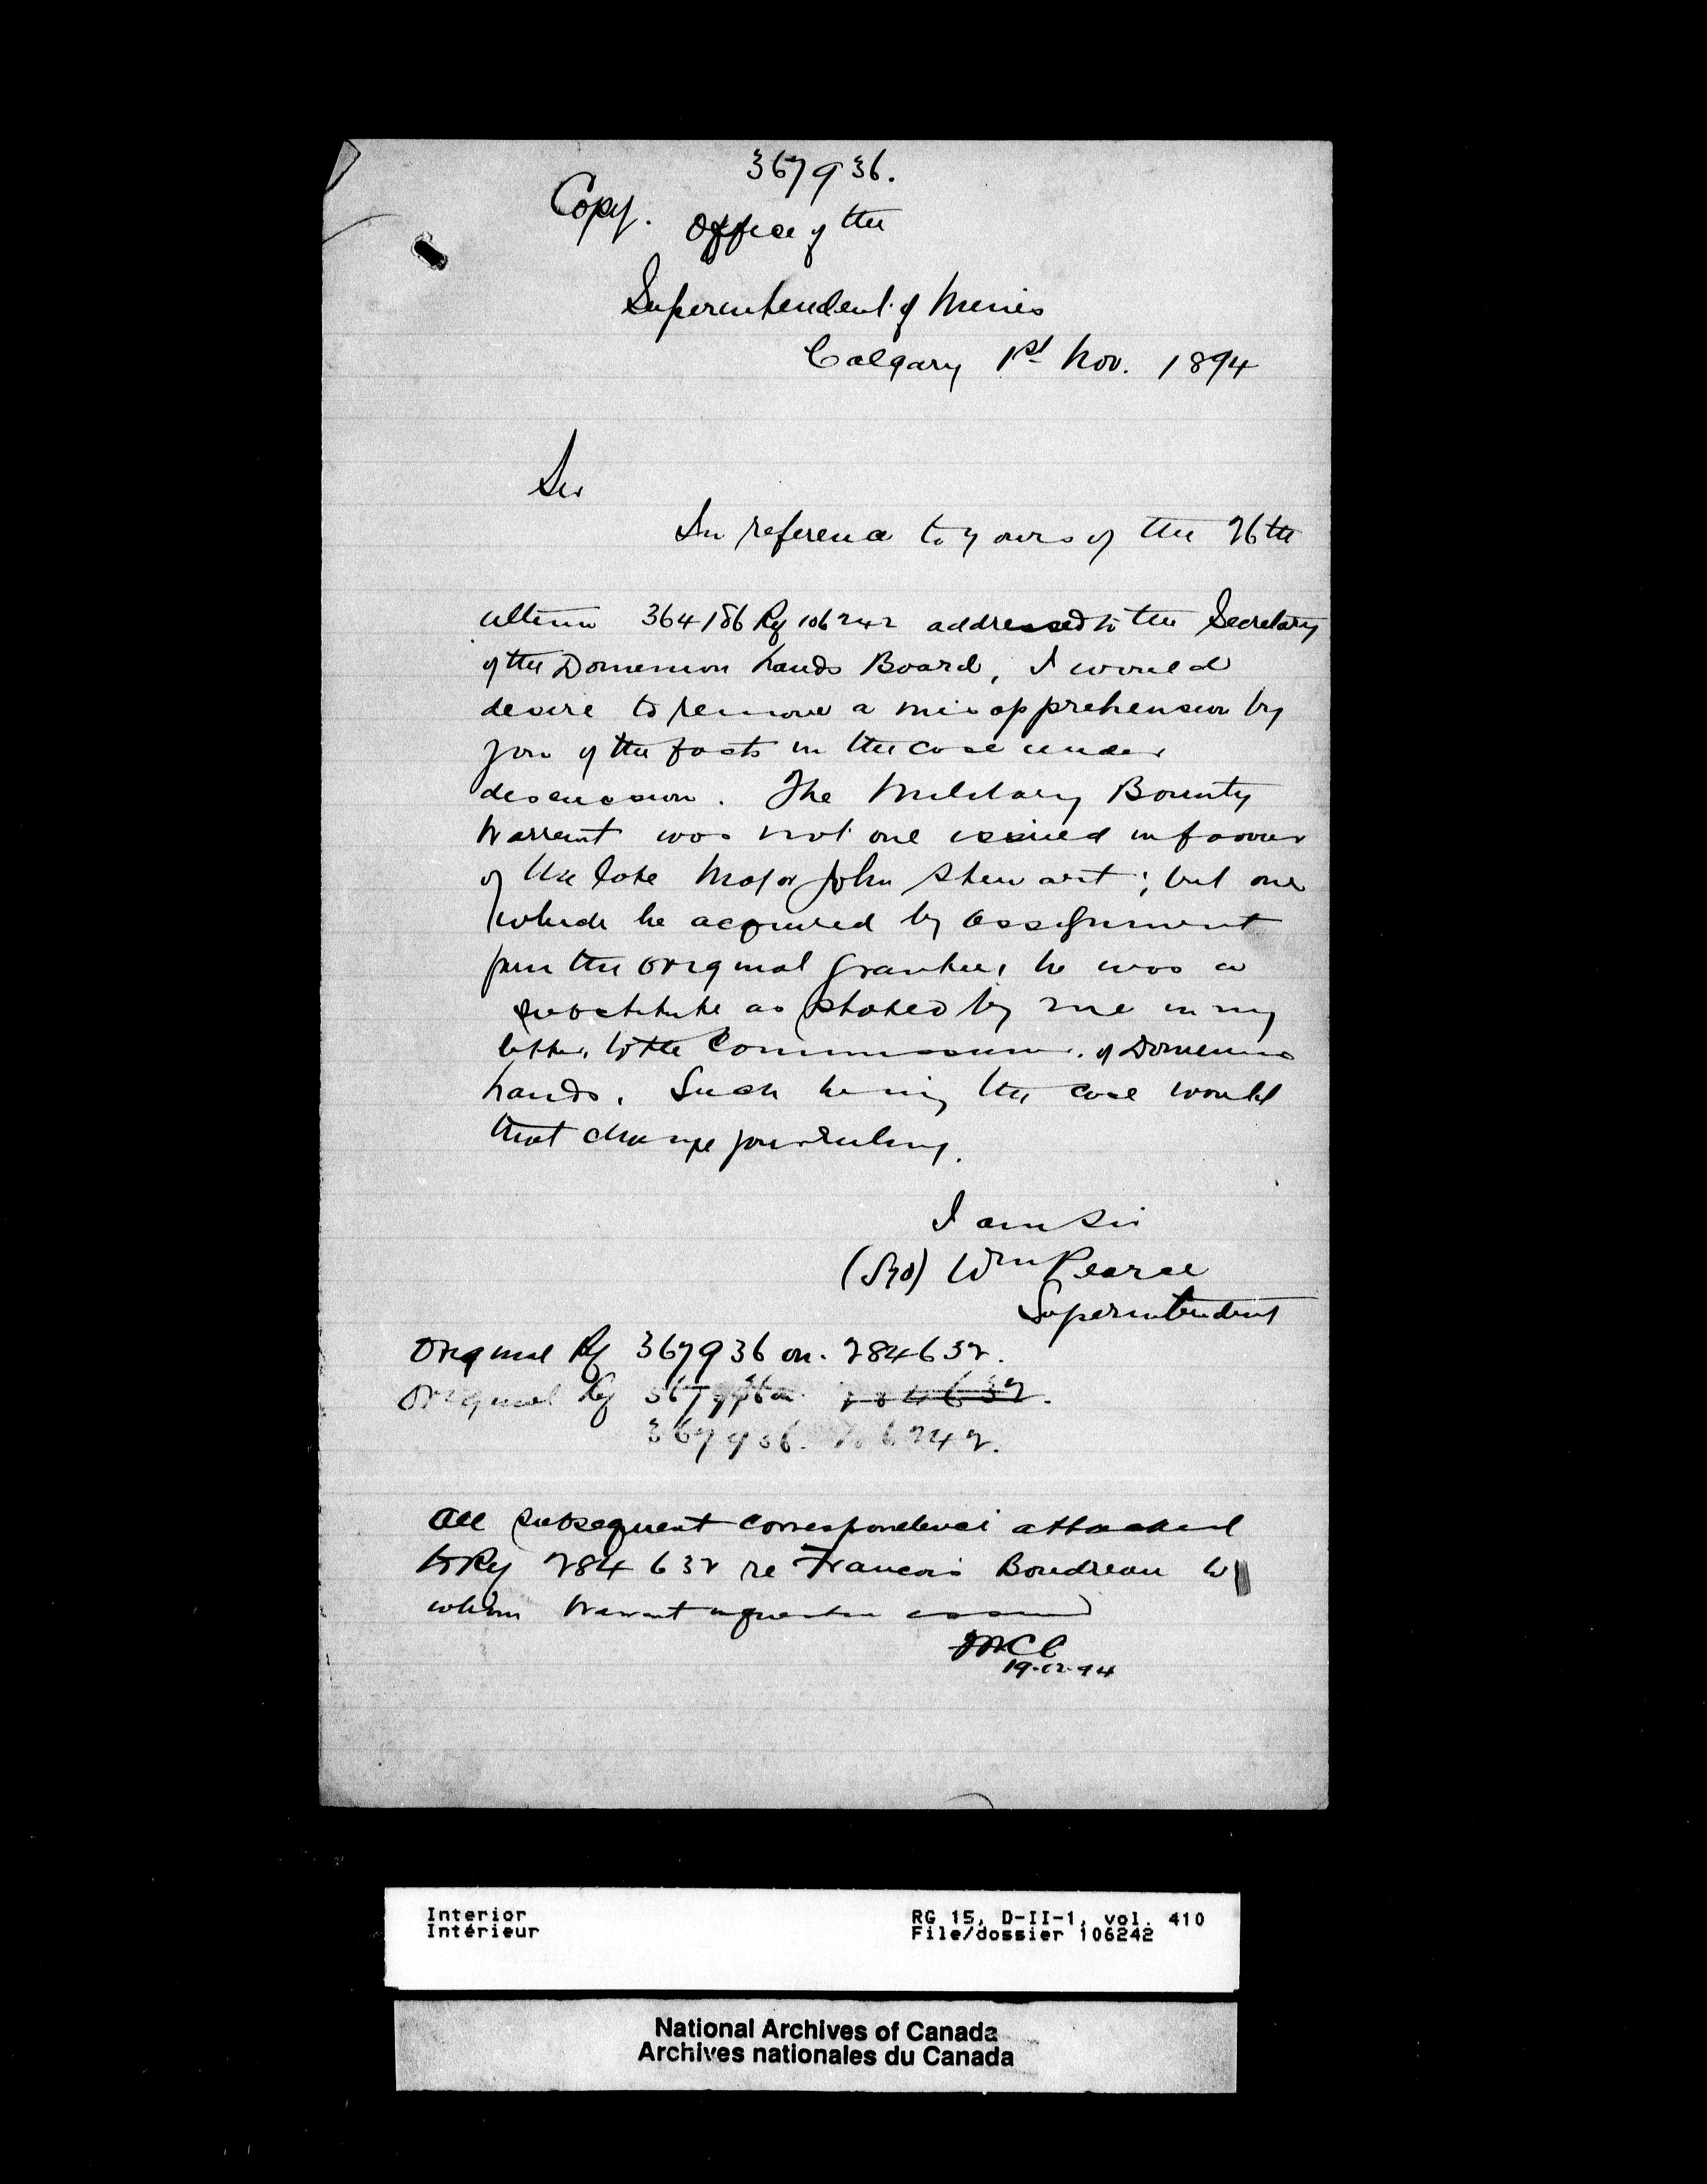 367936.
Copy. Office of the
Superintendent of Mines
Calgary 1st Nov. 1894
Sir
In reference to yours of the 26th
ultimo 364186 Rf 106242 addressed to the Secretary
of the Dominion Lands Board, I would
desire to remove a misapprehension by
you of the facts in the case under
discussion. The Military Bounty
Warrant was not one issued in favour
of the late Major John Stewart; but one
which he acquired by assignment
from the original Grantee, he was a
substitute as stated by me in my
letter to the Commissioner of Dominion
Lands. Such being the case would
that change your ruling.
I am Sir
(Sgd) Wm Pearce
Superintendent
Original Rf 367936 on. 284632.
Original Rf 367936 on 284632.
367936. 106242.
All subsequent correspondence attached
to Rf 284632 re Francois Boudreau to
whom Warrant in question issued
19.12.94
Interior
Intérieur
RG 15, D-II-1, vol. 410
File/dossier 106242
National Archives of Canada
Archives nationales du Canada